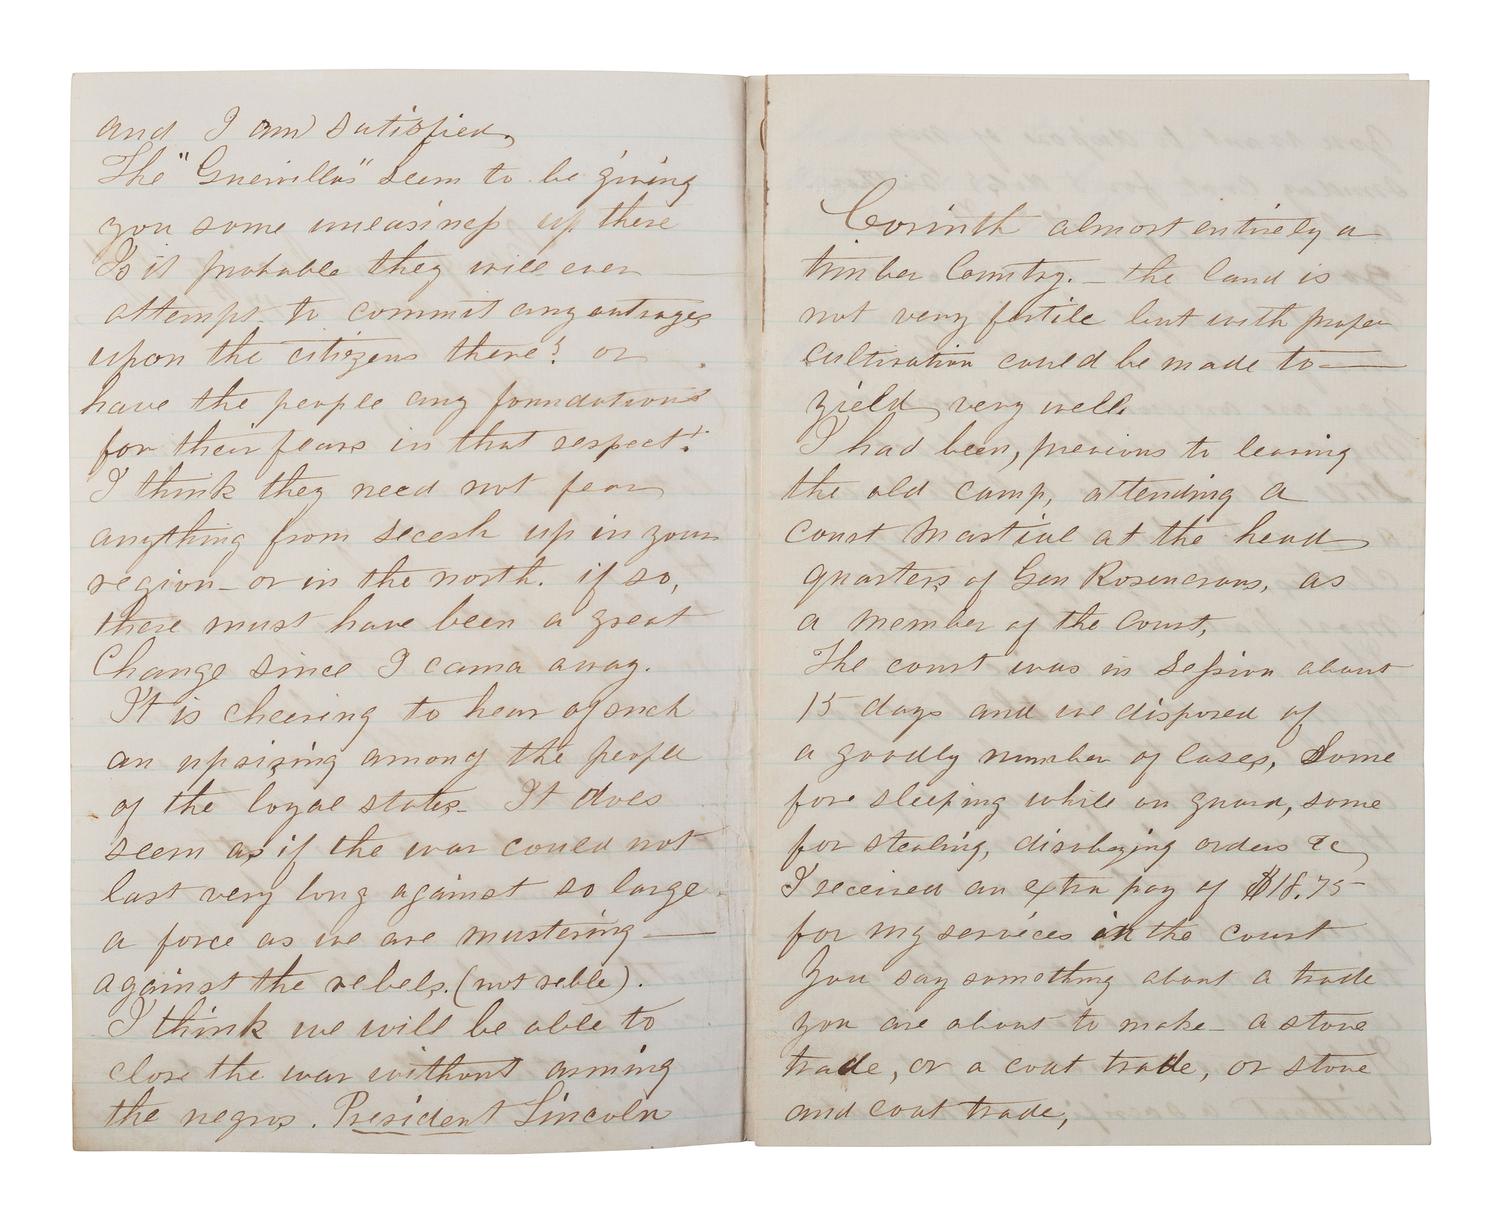 and I am satisfied.
The "Guerrillas" seem to be giving
you some uneasiness up there
Is it probable they will ever
attempt to commit any outrages
upon the citizens there? or
have the people any foundations
for their fears in that respect?
I think they need not fear
anything from secesh up in your
region - or in the north. if so,
there must have been a great
Change since I came away.
It is cheering to hear of such
an uprising among the people
of the loyal states. It does
seem as if the war could not
last very long against so large
a force as we are mustering —
against the rebels. (not reble).
I think we will be able to
close the war without arming
the negros. President Lincoln
Corinth almost entirely a
timber Country. — the land is
not very fertile but with proper
cultivation could be made to —
yield very well.
I had been, previous to leaving
the old camp, attending a
court Martial at the head
quarters of Gen Rosencrans, as
a member of the Court,
The court was in Session about
15 days and we disposed of
a goodly number of cases, Some
for sleeping while on guard, some
for stealing, disobeying orders &c
I received an extra pay of $18.75
for my services in the court
You say something about a trade
you are about to make - a stove
trade, or a coat trade, or stove
and coat trade,